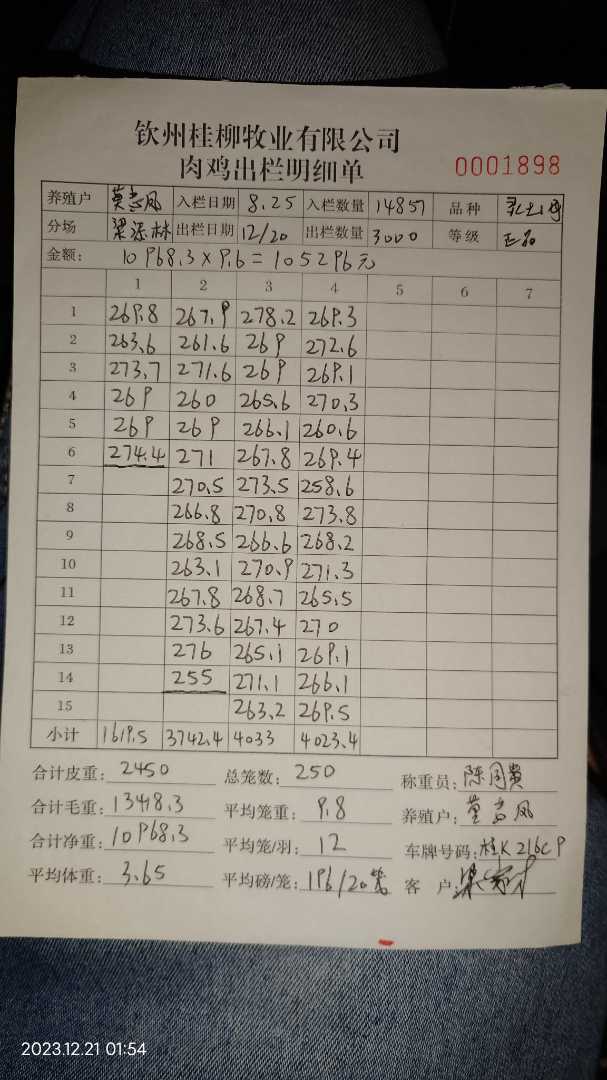 钦州桂柳牧业有限公司
肉鸡出栏明细单 0001898
养殖户 莫志凤 入栏日期 8.25 入栏数量 14857 品种
分场 梁添林 出栏日期 12/20 出栏数量 3000 等级 正品
金额: 10968.3×9.6=105296元
1 2 3 4 5 6 7
1 269.8 267.9 278.2 269.3
2 263.6 261.6 269 272.6
3 273.7 271.6 269 269.1
4 269 260 265.6 270.3
5 269 269 266.1 260.6
6 274.4 271 267.8 269.4
7 270.5 273.5 258.6
8 266.8 270.8 273.8
9 268.5 266.6 268.2
10 263.1 270.9 271.3
11 267.8 268.7 265.5
12 273.6 267.4 270
13 276 265.1 269.1
14 255 271.1 266.1
15 263.2 269.5
小计 1619.5 3742.4 4033 4023.4
合计皮重: 2450 总笼数: 250 称重员: 陈周贵
合计毛重: 13418.3 平均笼重: 9.8 养殖户: 莫志凤
合计净重: 10968.3 平均笼/羽: 12 车牌号码: 桂K216C9
平均体重: 3.65 平均磅/笼: 196/20笼 客 户:
2023.12.21 01:54